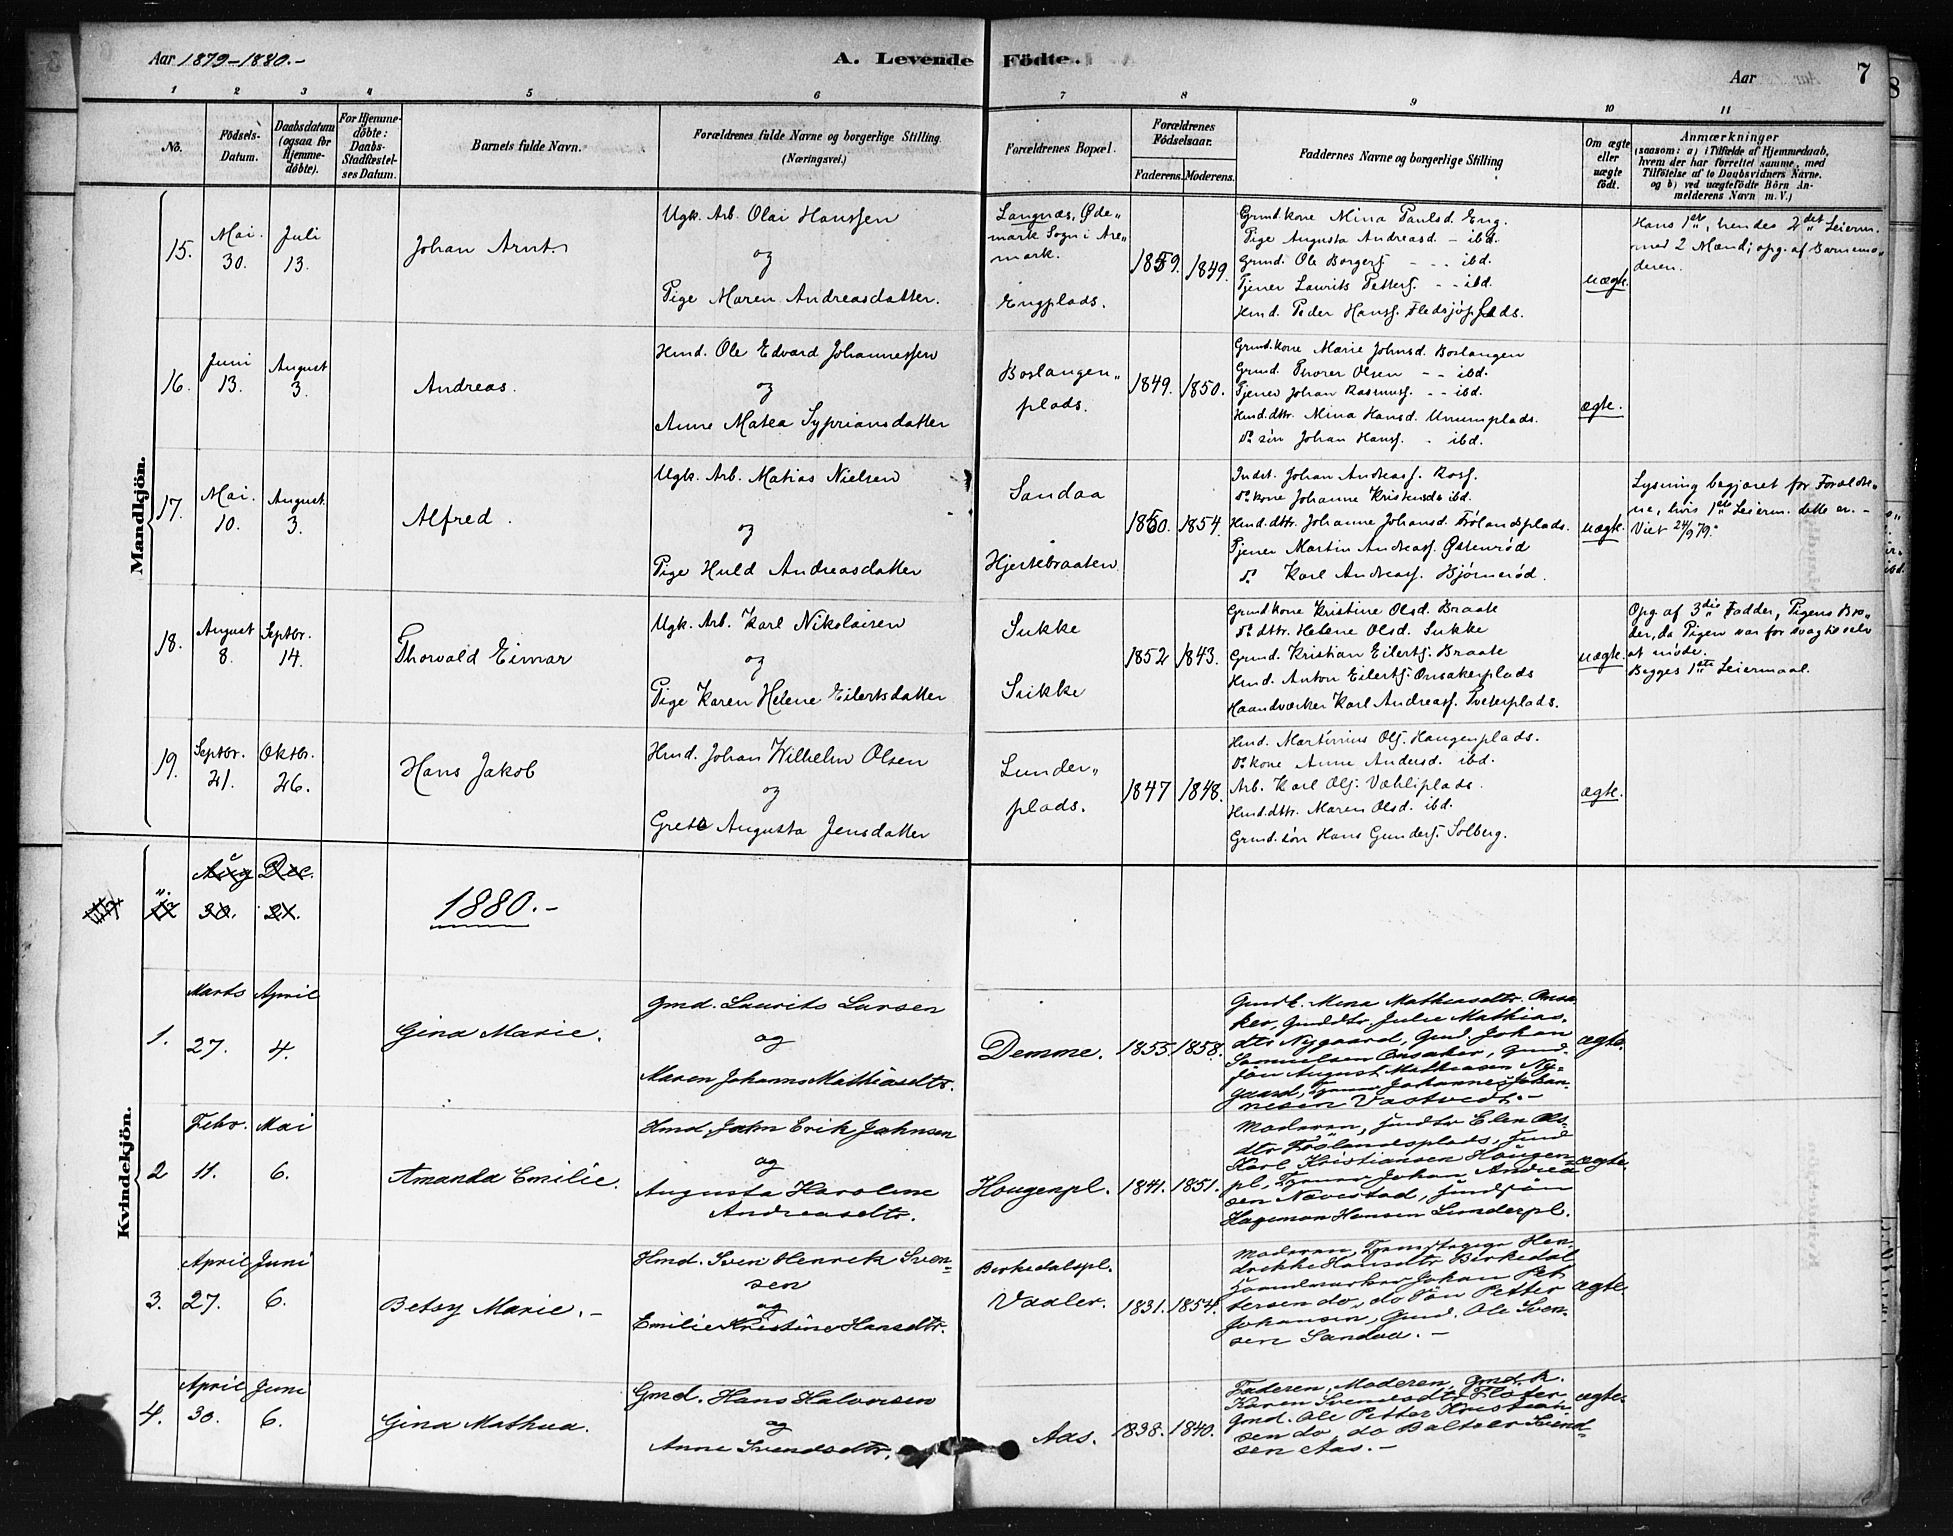 Aar 1879-1880.-
A. Levende Födte.
Aar
7
1 2 3 4 5 6 7 8 9 10 11
No.
Födsels-Datum.
Daabsdatum (ogsaa for Hjemme-döbte).
For Hjemme-döbte: Daabs-Stadfæstel-ses Datum.
Barnets fulde Navn.
Forældrenes fulde Navne og borgerlige Stilling (Næringsvei.)
Forældrenes Bopæl.
Forældrenes Födselsaar.
Faderens. Moderens.
Faddernes Navne og borgerlige Stilling
Om ægte eller uægte födt.
Anmærkninger
(saasom: a) i Tilfælde af Hjemmedaab, hvem der har forrettet samme, med Tilföielse af to Daabsvidners Navne, og b) ved uægtefödte Börn An-melderens Navn m. V.)
Mandkjön.
15.
Mai. 30.
Juli 13.
Johan Arnt.
Ugk. Arb. Olai Hansen
og
Pige Maren Andreasdatter.
Langnæs, Øde„
mark Sogn i Are„
mark.
Engplads.
1859. 1849.
Grund.kone Mina Paulsd. Eng.
Pige Augusta Andreasd. - ibd.
Grund. Ole Borgers. - - . ibd.
Tjener Laurits Petters. - - ibd.
Hmd. Peder Hans. Fledsjöplads.
uægte.
Hans 1ste, hendes 2det Leierm.
med 2 Mænd; opg. af Barnemo„
deren.
16.
Juni 13.
August 3.
Andreas.
Hmd. Ole Edvard Johannessen
og
Anne Matea Sypriansdatter
Boslangen„
plads.
1849. 1850.
Grund.kone Marie Johnsd. Boslangen
Grund. Thorer Olsen - - ibd.
Tjener Johan Rasmuss. - - ibd.
Hmd.dttr. Mina Hansd. Unumplads.
Do sön Johan Hans. - ibd.
ægte.
17.
Mai. 10.
August 3.
Alfred.
Ugk. Arb. Matias Nielsen
og
Pige Huld Andreasdatter
Sandaa
Hjertebraaten
1850. 1854.
Indst. Johan Andreas.
Do kone Johanne Kristensd. ibd.
Hmd.dttr. Johanne Johansd. Frölandsplads.
Tjener Martin Andreas. Østenrød
do Karl Andreas. Bjørnerød.
uægte.
Lysning begjæret for Foreldre„
ne, hvis 1ste Leierm. dette er. -
Viet 24/9 79.
18.
August 8.
Septbr. 14.
Thorvald Eimar
Ugk. Arb. Karl Nikolaisen
og
Pige Karen Helene Eilertsdatter
Sukke
Sukke
1852 1843.
Grundkone Kristine Olsd. Braate
Do dttr. Helene Olsd. Sukke
Grund. Kristian Eilerts. Braate
Hmd. Anton Eilerts. Onsakerplads
Haandværker Karl Andreas. Tveterplads.
uægte.
Opg. af 3die Fadder, Pigens Bro„
der, da Pigen var for svag to selv
at møde.
Begges 1ste Leiermaal.
19.
Septbr. 21.
Oktbr. 26.
Hans Jakob
Hmd. Johan Wilhelm Olsen
og
Grete Augusta Jensdatter
Lunder„
plads.
1847 1848.
Hmd. Martinius Ols. Haugenplads.
Do kone Anne Andersd. ibd.
Arb. Karl Ols. Væhliplads.
Hmd.dttr. Maren Olsd. ibd.
Grund.sön Hans Gunders. Solberg.
ægte.
Kvindekjön.
Aug 30.
Dec. 21.
1880.-
1.
Marts 27.
April 4.
Gina Marie.
Gmd. Laurits Larsen
og
Maren Johanne Mathiasdtr.
Demme.
1855. 1858.
Gmdk. Mina Mathiasdtr. Onsa-
ker, Gmddtr. Julie Mathias-
dtr Nygaard, Gmd. Johan
Samuelsen Onsaker, Gmd.
sön August Mathiasen Ny-
gaard, Johannes Johan-
nesen Vastvedt.-
ægte.
2
Febr. 11.
Mai 6.
Amanda Emilie.
Hmd. John Erik Johnsen
og
Augusta Karoline
Andreasdtr.
Hougenpl.
1841. 1851.
Moderen, Elen Ols-
dtr Frölandsplads,
Karl Kristiansen Hougen-
pl. Johan Andrea-
sen Navestad,
Hageman Hansen Lunderpl.
ægte.
3.
April 27.
Juni 6.
Betsy Marie.-
Hmd. Sven Henrik Sven-
sen
og
Emilie Kristine Hansdtr.
Birkedalspl.
Vaaler.
1831. 1854.
Moderen, Hen-
drikke Hansdtr Birkedal
Johan Pet-
tersen do, do Sön Petter
Johansen, Gmd. Ole Sven-
sen Sandaa.-
ægte
4.
April 30.
Juni 6.
Gina Mathea.
Gmd. Hans Halvorsen
og
Anne Svendsdtr.
Aas.
1838. 1840.
Faderen, Moderen, Gmd.k.
Karen Svensdtr Floter
Gmd. Ole Petter Kristian-
sen do, do Baltser Svend-
sen Aas.-
ægte.